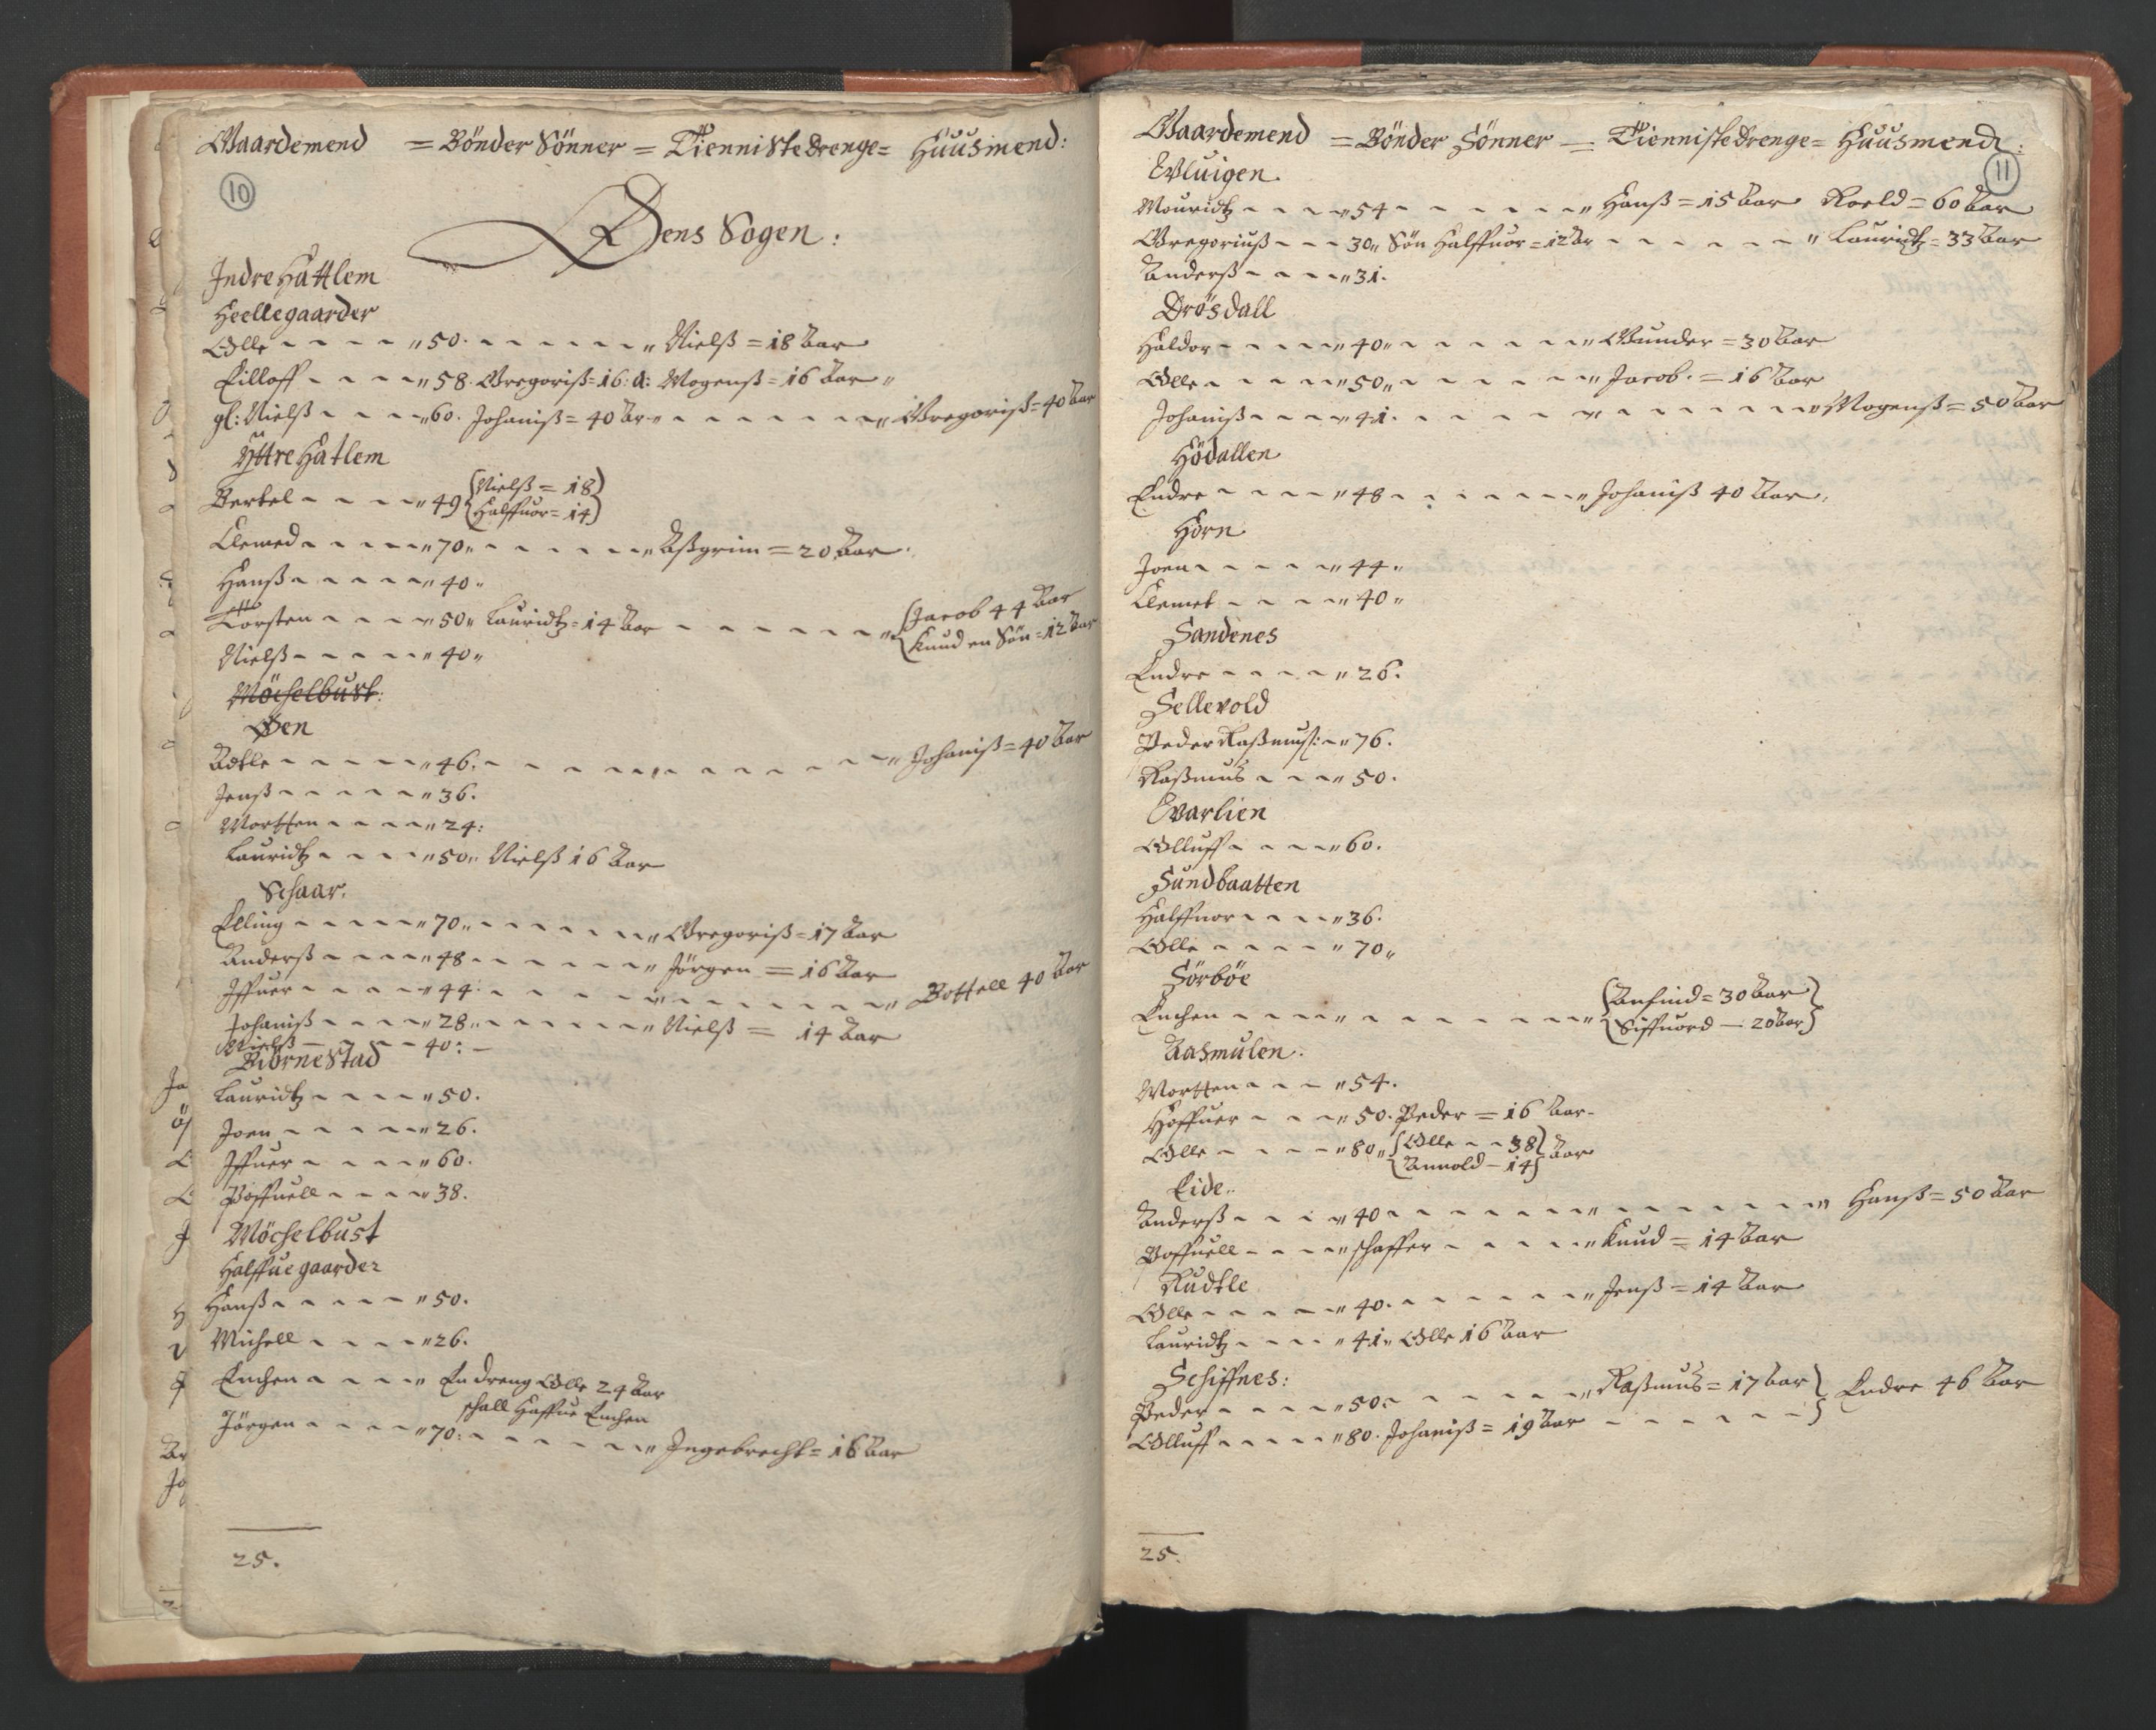 Gaardemend = Bönder Sönner = Tienniste Drenge = Huusmend:
10
Øens Sogen:
Indre Hattlem
Heellegaarder
Olle - - - - " 50. - - - - - - " Nielß = 18 Aar
Eilloff - - - - " 58. Gregoriß = 16: A: Mogenß = 16 Aar "
gl: Nielß - - - - " 60. Johaniß = 40 Ar " - - - - - - - " Gregoriß = 40 Aar
Yttre Hatlem
Bertel - - - - " 49 { Nielß = 18 }
{ Halffuor = 14 }
Clemed - - - - " 70 " - - - - - - " Aßgrim = 20 Aar.
Hanß - - - - - " 40 "
Torsten - - - - " 50 " Lauridtz = 14 Aar - - - - - - - " { Jacob 44 Aar
{ Knud en Sön = 12 Aar
Nielß - - - - - " 40 "
Möchelbust:
Øen
Adtle - - - - - " 46: - - - - - - - - - - - - " Johaniß = 40 Aar
Jenß - - - - - " 36.
Mortten - - - - " 24:
Lauridtz - - - - " 50 " Nielß 16 Aar
Schaar.
Elling - - - - - " 70 " - - - - - - " Gregoriß = 17 Aar
Anderß - - - - " 48 - - - - - - " Jörgen = 16 Aar
Iffuer - - - - " 44: - - - - - - - - - - - - " Bottell 40 Aar
Johaniß - - - - " 28 " - - - - - - " Nielß = 14 Aar
Nielß - - - - 40: -
Biörnestad
Lauridtz - - - - " 50.
Joen - - - - - " 26.
Iffuer - - - - " 60.
Poffuell - - - - " 38.
Möchelbust
Halffue gaarder
Hanß - - - - - " 50.
Michell - - - - " 26.
Enchen - - - - " En dreng Olle 24 Aar
schall Haffue Enchen
Jörgen - - - - " 70: - - - - - - " Ingebrecht = 16 Aar
25.
Gaardemend = Bönder Sönner = Tienniste Drenge = Huusmend:
11
Evluigen.
Mouridtz - - - - " 54 - - - - - - " Hanß = 15 Aar Roeld = 60 Aar
Gregoriuß - - - 30 " Sön Halffuor = 12 Ar - - - - - - " Lauridtz = 33 Aar
Anderß - - - - " 31.
Drösdall
Haldor - - - - " 40 " - - - - - - " Gunder = 30 Aar
Olle - - - - - " 50 " - - - - - - " Jacob. = 16 Aar
Johaniß - - - - " 41. - - - - - - - - - - - - " Mogenß = 50 Aar
Hödallen
Endre - - - - " 48 - - - - - - " Johaniß 40 Aar.
Horn
Joen - - - - - " 44 "
Clemet - - - - " 40 "
Sandenes
Endre - - - - " 26.
Sellevold
Peder Raßmuß: - " 76.
Raßmus - - - " 50.
Evarlien
Olluff - - - - " 60.
Sundbaatten
Halffuor - - - - " 36.
Olle - - - - - " 70 "
Sörböe
Enchen - - - - " - - - - - - - " { Anfind = 30 Aar }
{ Siffuord - 20 Aar }
Aasmulen.
Mortten - - - " 54.
Hoffuer - - - " 50. Peder = 16 Aar -
Olle - - - - " 80 " { Olle - - 38 } Aar
{ Annold - 14 }
Eide.
Anderß - - - - " 40 - - - - - - - - - - - - - " Hanß = 50 Aar
Poffuell - - - - " schaffer - - - - - " Knud = 14 Aar
Rudtle
Olle - - - - - " 40. - - - - - - " Jenß = 14 Aar
Lauridtz - - - - " 41 " Olle 16 Aar
Schiffnes:
Peder - - - - - " 50: - - - - - - " Raßmus = 17 Aar } Endre 46 Aar
Olluff - - - - - " 80. Johaniß = 19 Aar - - - - - - }
25.